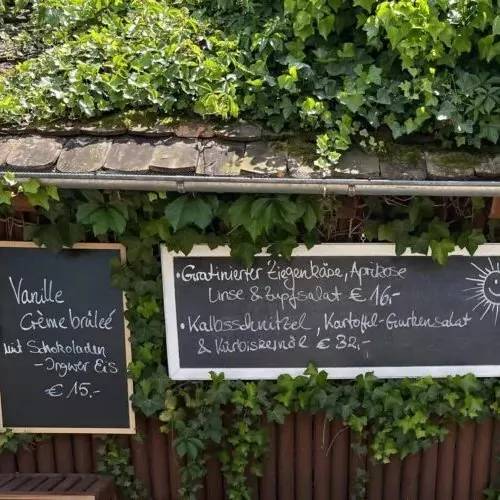 Vanille
Crème brûleé
mit Schokoladen
-Ingwer Eis
€ 15.-
• Gratinierter Ziegenkäse, Aprikose
Linse & Zupfsalat € 16,-
• Kalbsschnitzel, Kartoffel-Gurkensalat
& Kürbiskernöl € 32,-